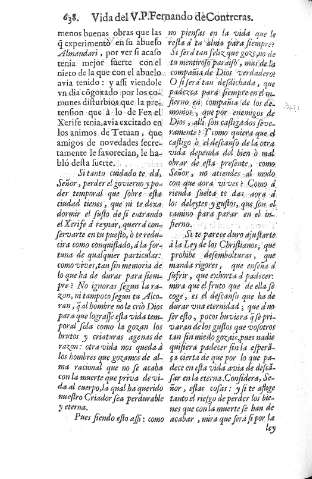 638. Vida del V.P. Fernando de Contreras.
menos buenas obras que las
q̃ experimentò en su abuelo
Almandari, por ver si acaso
tenia mejor suerte con el
nieto de la que con el abuelo
avia tenido: y assi viendole
vn dia cõgoxado por los co-
munes disturbios que la pre-
tension que à lo de Fez el
Xerife tenia, avia excitado en
los animos de Tetuan, que
amigos de novedades secre-
tamente le favorecian, le ha-
blò desta suerte.
Si tanto cuidado te dà,
Señor, perder el govierno y po-
der temporal que sobre esta
ciudad tienes, que ni te dexa
dormir el susto de si entrando
el Xerife à reynar, querrà con-
servarte en tu puesto, ò te redu-
cira como conquistado, à la for-
tuna de qualquier particular:
como vives, tan sin memoria de
lo que ha de durar para siem-
pre? No ignoras segun la ra-
zon, ni tampoco segun tu Alco-
ran, q̃ al hombre no le criò Dios
para que lograsse esta vida tem-
poral sola como la gozan los
brutos y criaturas agenas de
razon: otra vida nos queda à
los hombres que gozamos de al-
ma racional que no se acaba
con la muerte que priva de vi-
da al cuerpo, la qual ha querido
nuestro Criador sea perdurable
y eterna.
Pues siendo esto assi: como
no piensas en la vida que le
resta à tu alma para siempre?
Si serà tan feliz que goze, no de
tu mentiroso paraiso, mas de la
compañia de Dios verdadero?
O si serà tan desdichada, que
padezca para siempre en el in-
fierno en compañia de los de-
monios, que por enemigos de
Dios, alli son castigados seve-
ramente? Y como quiera que el
castigo ò el descanso de la otra
vida dependa del bien ò mal
obrar de esta presente, como
Señor, no atiendes al modo
con que aora vives? Como à
rienda suelta te das aora à
los deleytes y gustos, que son el
camino para parar en el in-
fierno.
Si te parece duro ajustarte
à la Ley de los Christianos, que
prohibe desembolturas, que
manda rigores, que enseña à
sufrir, que exhorta à padecer:
mira que el fruto que de ella se
coge, es el descanso que ha de
durar vna eternidad; que à no
ser esto, pocos huviera q̃ se pri-
varan de los gustos que vosotros
tan sin miedo gozais, pues nadie
quisiera padecer sin la esperã-
ça cierta de que por lo que pa-
dece en esta vida avia de descã-
sar en la eterna. Considera, Se-
ñor, estas cosas: y si te aflige
tanto el riesgo de perder los bie-
nes que con la muerte se han de
acabar, mira que serà si por la
ley